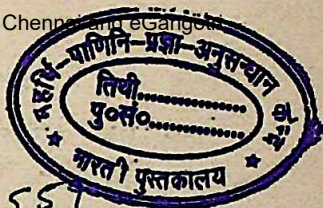 Chennai and eGangotri
महर्षि-पाणिनि-प्रज्ञा-अनुसन्धान
तिथी..............
पु०सं०..............
भारती पुस्तकालय